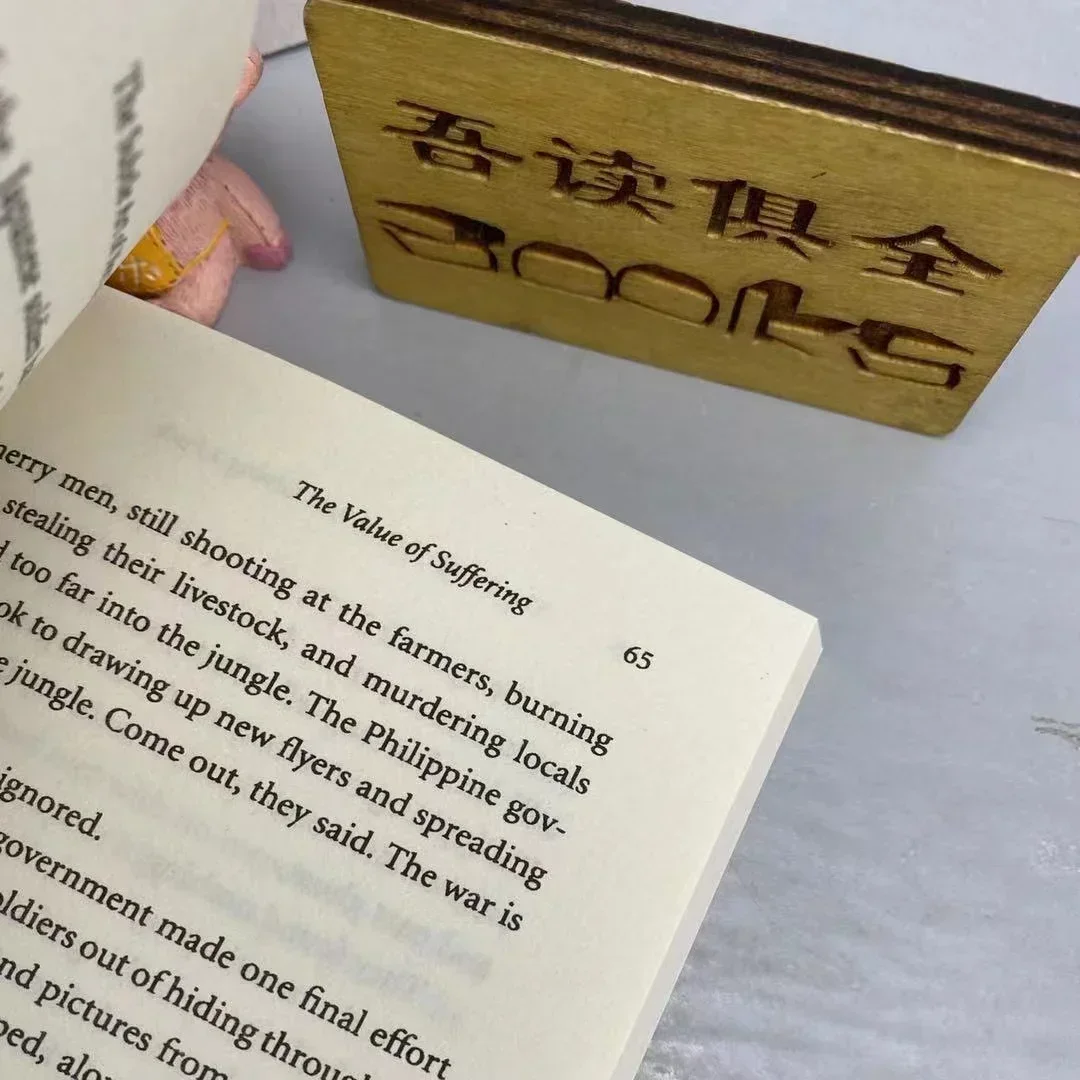 吾读俱全
Books
The Value of Suffering
65
men, still shooting at the farmers, burning
stealing their livestock, and murdering locals
too far into the jungle. The Philippine gov-
to drawing up new flyers and spreading
jungle. Come out, they said. The war is
ignored.
government made one final effort
soldiers out of hiding through
and pictures from